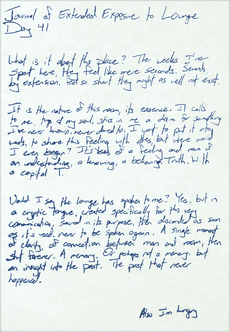 Journal of Extended Exposure to Lounge
Day 41
What is it about this place? The weeks I've
spent here, they feel like mere seconds. Seconds,
by extension, feel so short they might as well not exist.
It is the nature of this room, its essence. It calls
to me, my soul, in me a desire for something
I've never known, never had to. I want to put it into
words, to share this feeling with others, but where would
I even begin? It's less of a feeling and more of
an understanding, a knowing, a behaving. Truth. With
a capital T.
Would I say the lounge has spoken to me? Yes, but in
a cryptic tongue, created specifically for this very
conversation, sound in its purpose, then discarded as soon
as it's used, never to be spoken again. A single moment
of clarity, of connection between man and room, then
shut forever. A memory. Or perhaps not a memory, but
an insight into the past. The past that never
happened.
Also I'm hungry